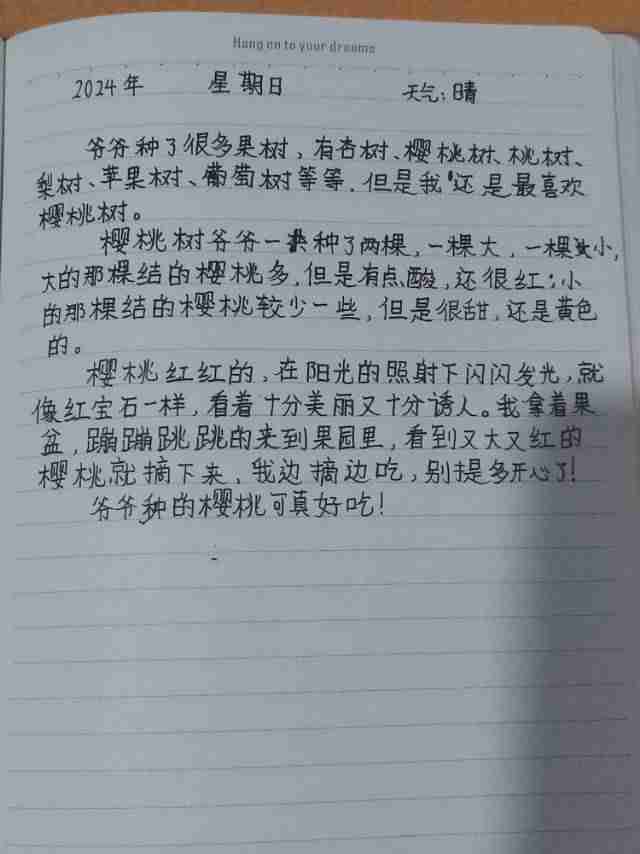 Hang on to your dreams
2024年 星期日 天气:晴
爷爷种了很多果树，有杏树、樱桃树、桃树、
梨树、苹果树、葡萄树等等．但是我还是最喜欢
樱桃树。
樱桃树爷爷一共种了两棵，一棵大，一棵小，
大的那棵结的樱桃多，但是有点酸，还很红；小
的那棵结的樱桃较少一些，但是很甜，还是黄色
的。
樱桃红红的，在阳光的照射下闪闪发光，就
像红宝石一样，看着十分美丽又十分诱人。我拿着果
盆，蹦蹦跳跳的来到果园里，看到又大又红的
樱桃就摘下来，我边摘边吃，别提多开心了！
爷爷种的樱桃可真好吃！